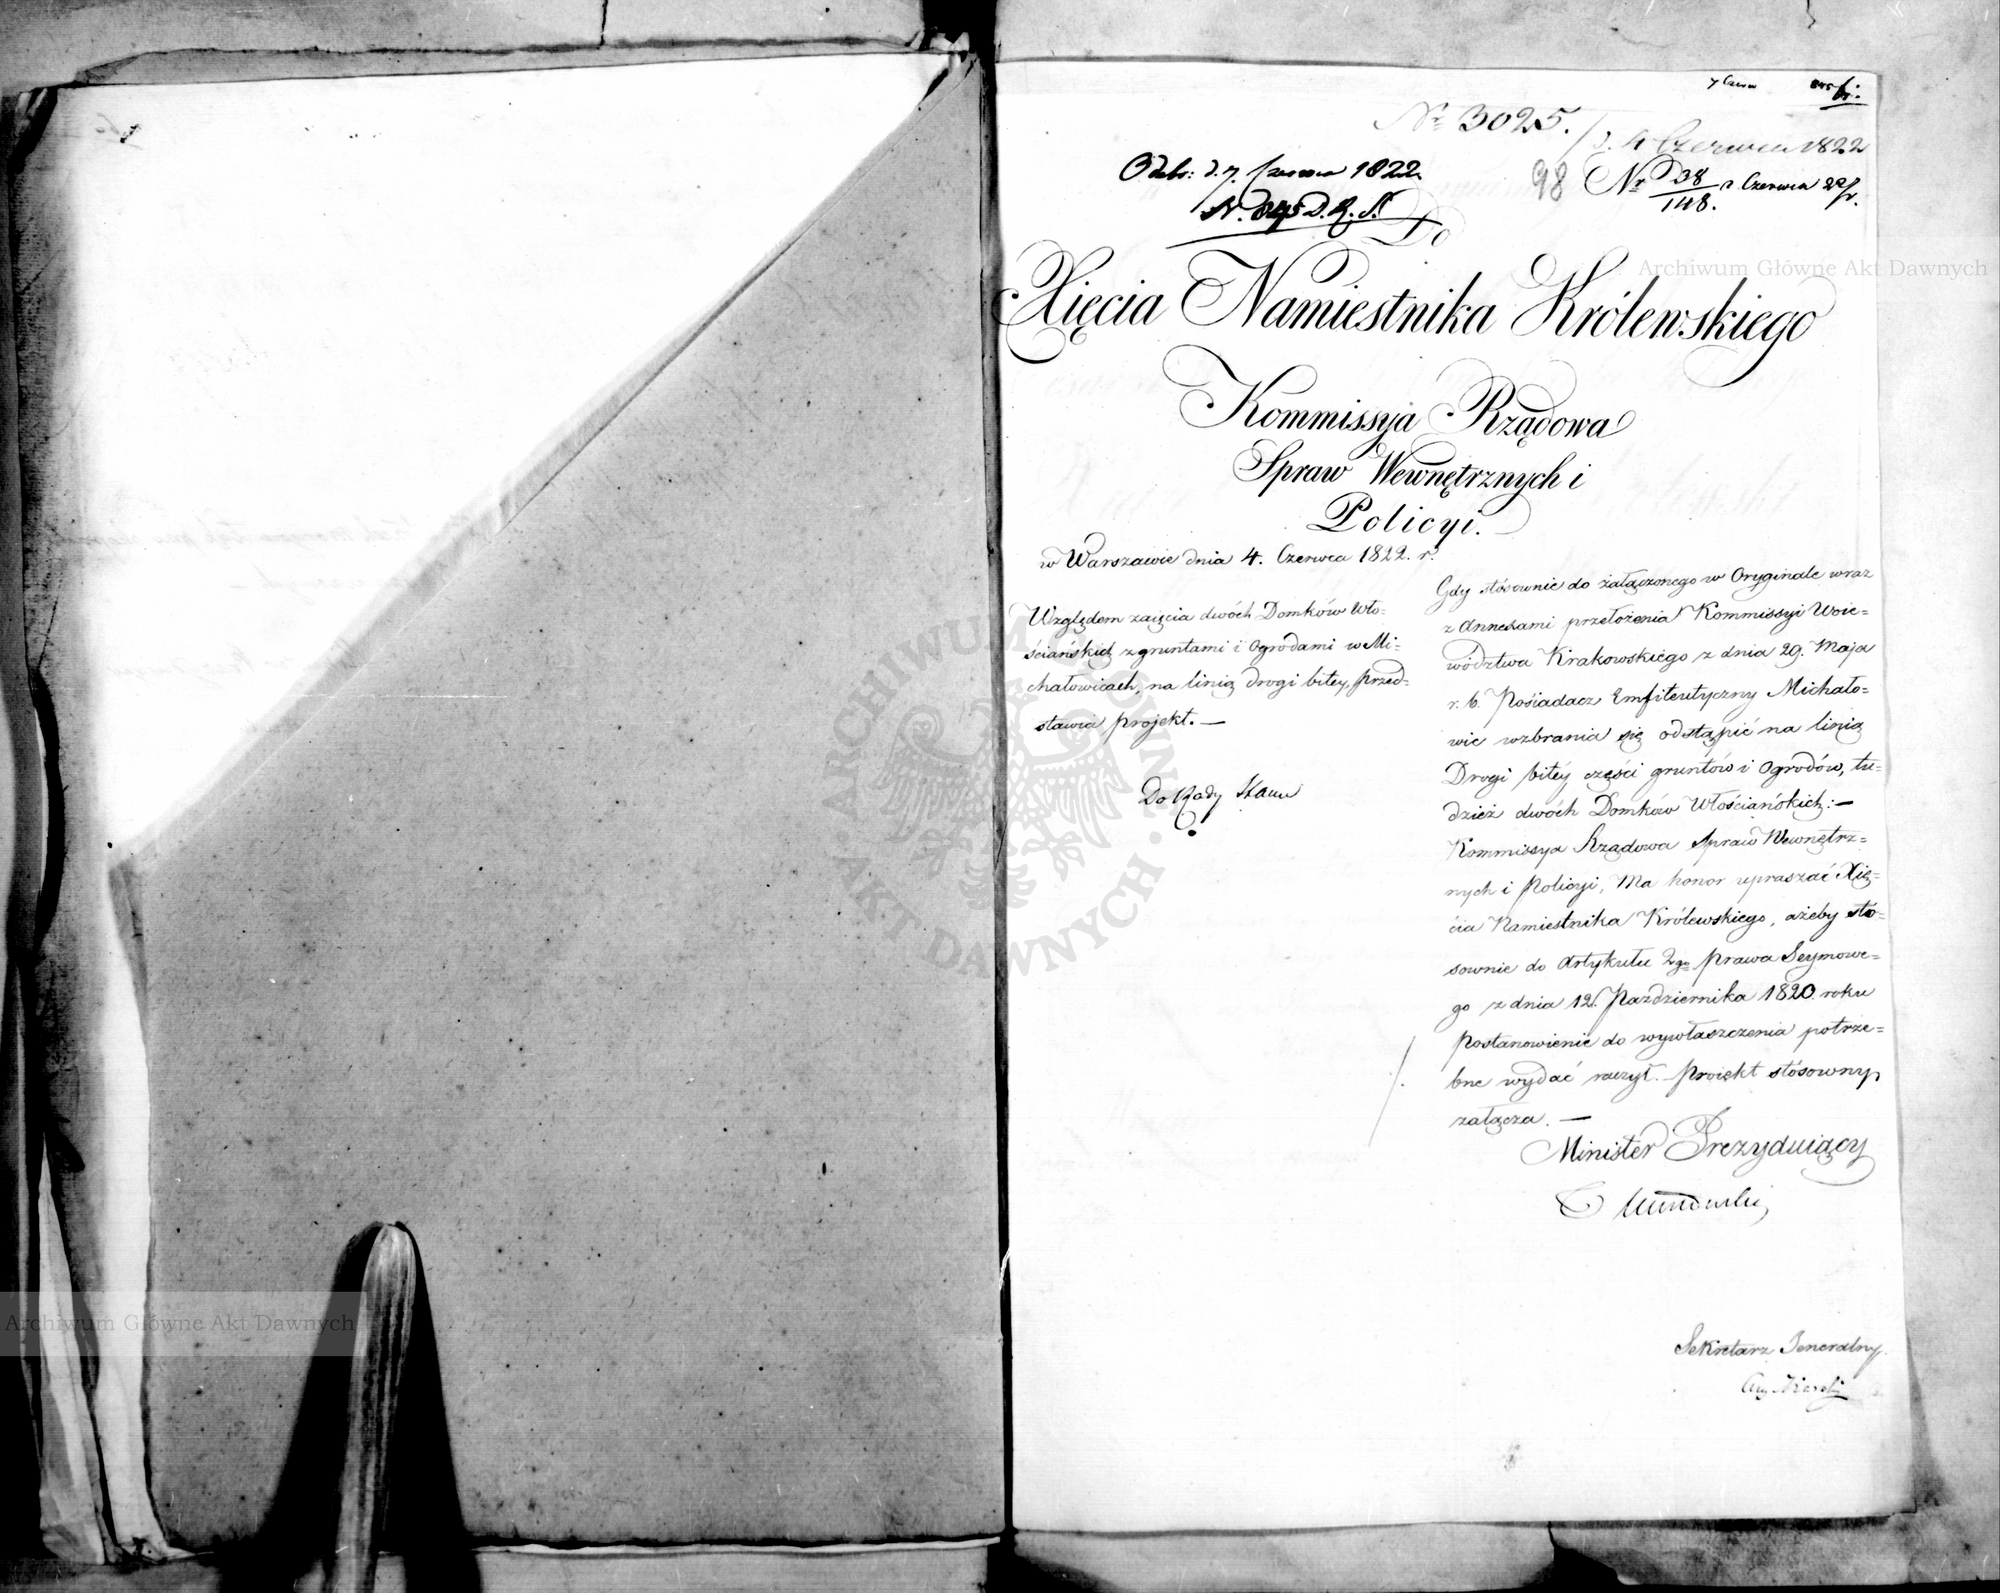 7 Czerw 845
Nr 3025. / d. 4 Czerwca 1822
Odebr: d. 7. Czerwca 1822
N. 845 D. R. S.
98 Nr D38/148. Czerwca 22 r.
Do
Xięcia Namiestnika Królewskiego
Kommissya Rządowa
Spraw Wewnętrznych i
Policyi.
w Warszawie dnia 4. Czerwca 1822. r.
Względem zaięcia dwóch Domków Wło-
ściańskich z gruntami i Ogrodami w Mi-
chałowicach, na linią drogi bitey, przed-
stawia projekt. —
Do Rady Stanu
Gdy stósownie do załączonego w Oryginale wraz
z Annexami przełożenia Kommissyi Woie=
wództwa Krakowskiego z dnia 29. Maja
r. b. Posiadacz Emfiteutyczny Michało=
wic wzbrania się odstąpić na linią
Drogi bitéy części gruntów i Ogrodów, tu=
dzież dwóch Domków Włościańskich: —
Kommissya Rządowa Spraw Wewnętrz=
nych i Policyi, Ma honor upraszać Xię=
cia Namiestnika Królewskiego, ażeby stó=
sownie do Artykułu 2go prawa Seymowe=
go z dnia 12. Października 1820. roku
Postanowienie do wywłaszczenia potrze=
bne wydać raczył. Proiekt stósowny
załącza. —
Minister Prezyduiący
Sekretarz Jeneralny
Archiwum Główne Akt Dawnych
Archiwum Główne Akt Dawnych
ARCHIWUM GŁÓWNE
AKT DAWNYCH